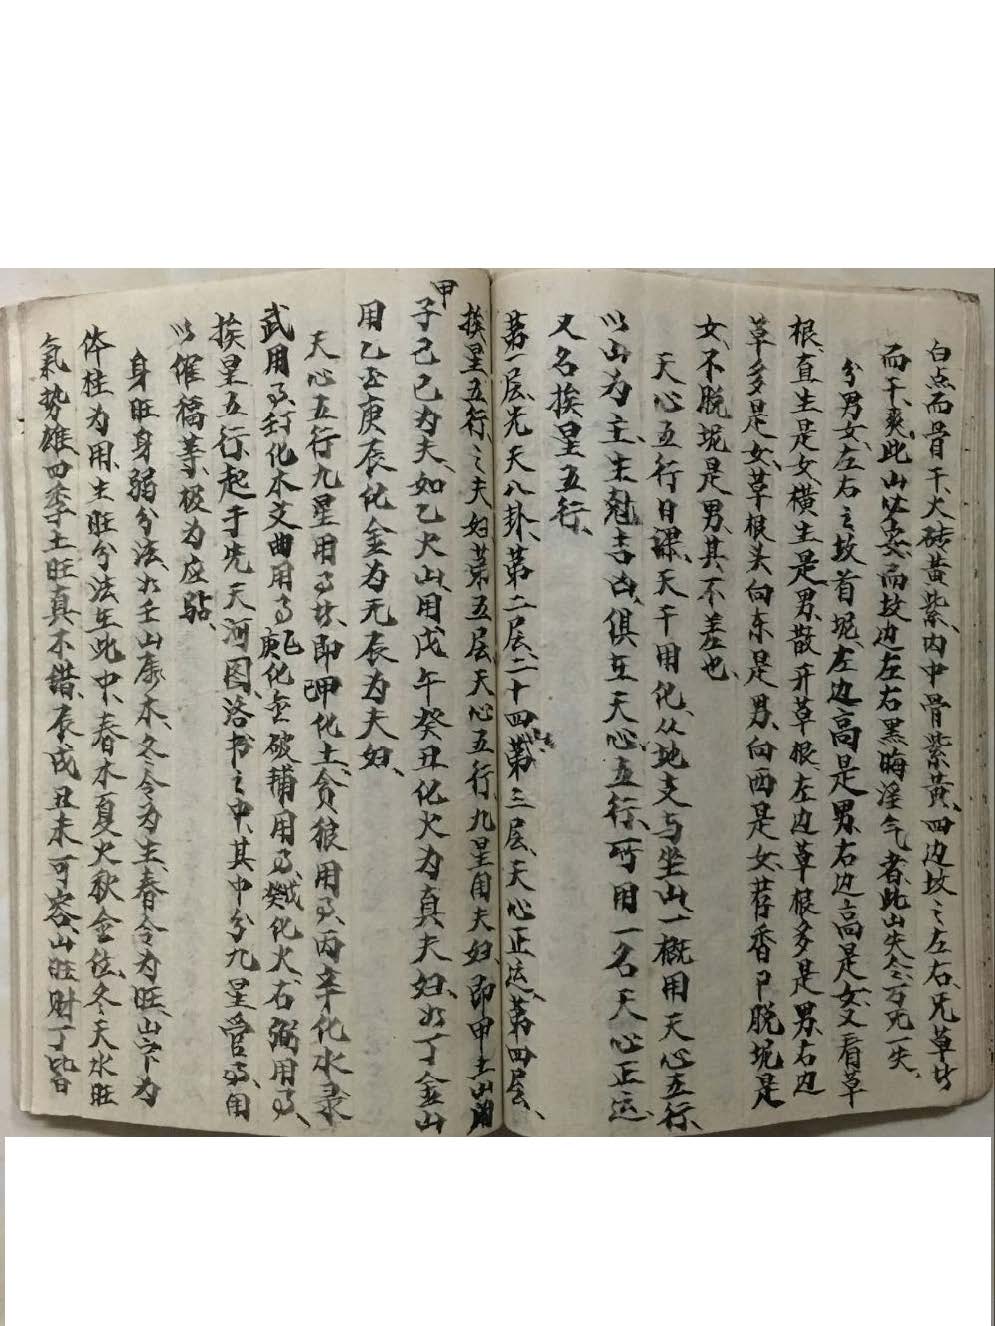 白点而骨干、火砖黄紫、内中骨紫黄、四边坟之左右、兄草片
而干爽、此山必妥、而坟边左右黑晦淫气者此山失
分男女、左右之坟首坭、左边高是男、右边高是女、又看草
根、直生是女、横生是男、散开草根、左边草根多是男、右边
草多是女、草根头向东是男、向西是女、若香 脱坭是
女、不脱坭是男、其不差也、
天心五行日课、天干用化、从地支与坐山一概用天心五行、
以山为主、生尅吉凶、俱互天心五行、可用一名天心正运、
又名挨星五行、
第一层、先天八卦、第二层、二十四山、第三层、天心正运、第四层、
挨星五行、之夫妇、第五层天心五行、九星用夫妇、即甲土山用
甲子己巳为夫、如乙火山、用戊午癸丑化火为真夫妇、如丁金山
用乙丑庚辰化金为元辰为夫妇、
天心五行九星用事、坎、即甲己化土、贪狼用事、丙辛化水、彔
武用事、 化木、文曲用事、乙庚化金、破辅用事、戊癸化火、右弼用事、
挨星五行、起于先天河图、洛书之中、其中分九星管事、用
以催福等、极为应驗、
身旺身弱分法、如壬山属木、冬令为生、春令为旺、山家为
体、柱为用、生旺分法在此中、春木夏火秋金位、冬天水旺
氣势雄、四季土旺真不错、辰戌丑未可容、山旺财丁皆